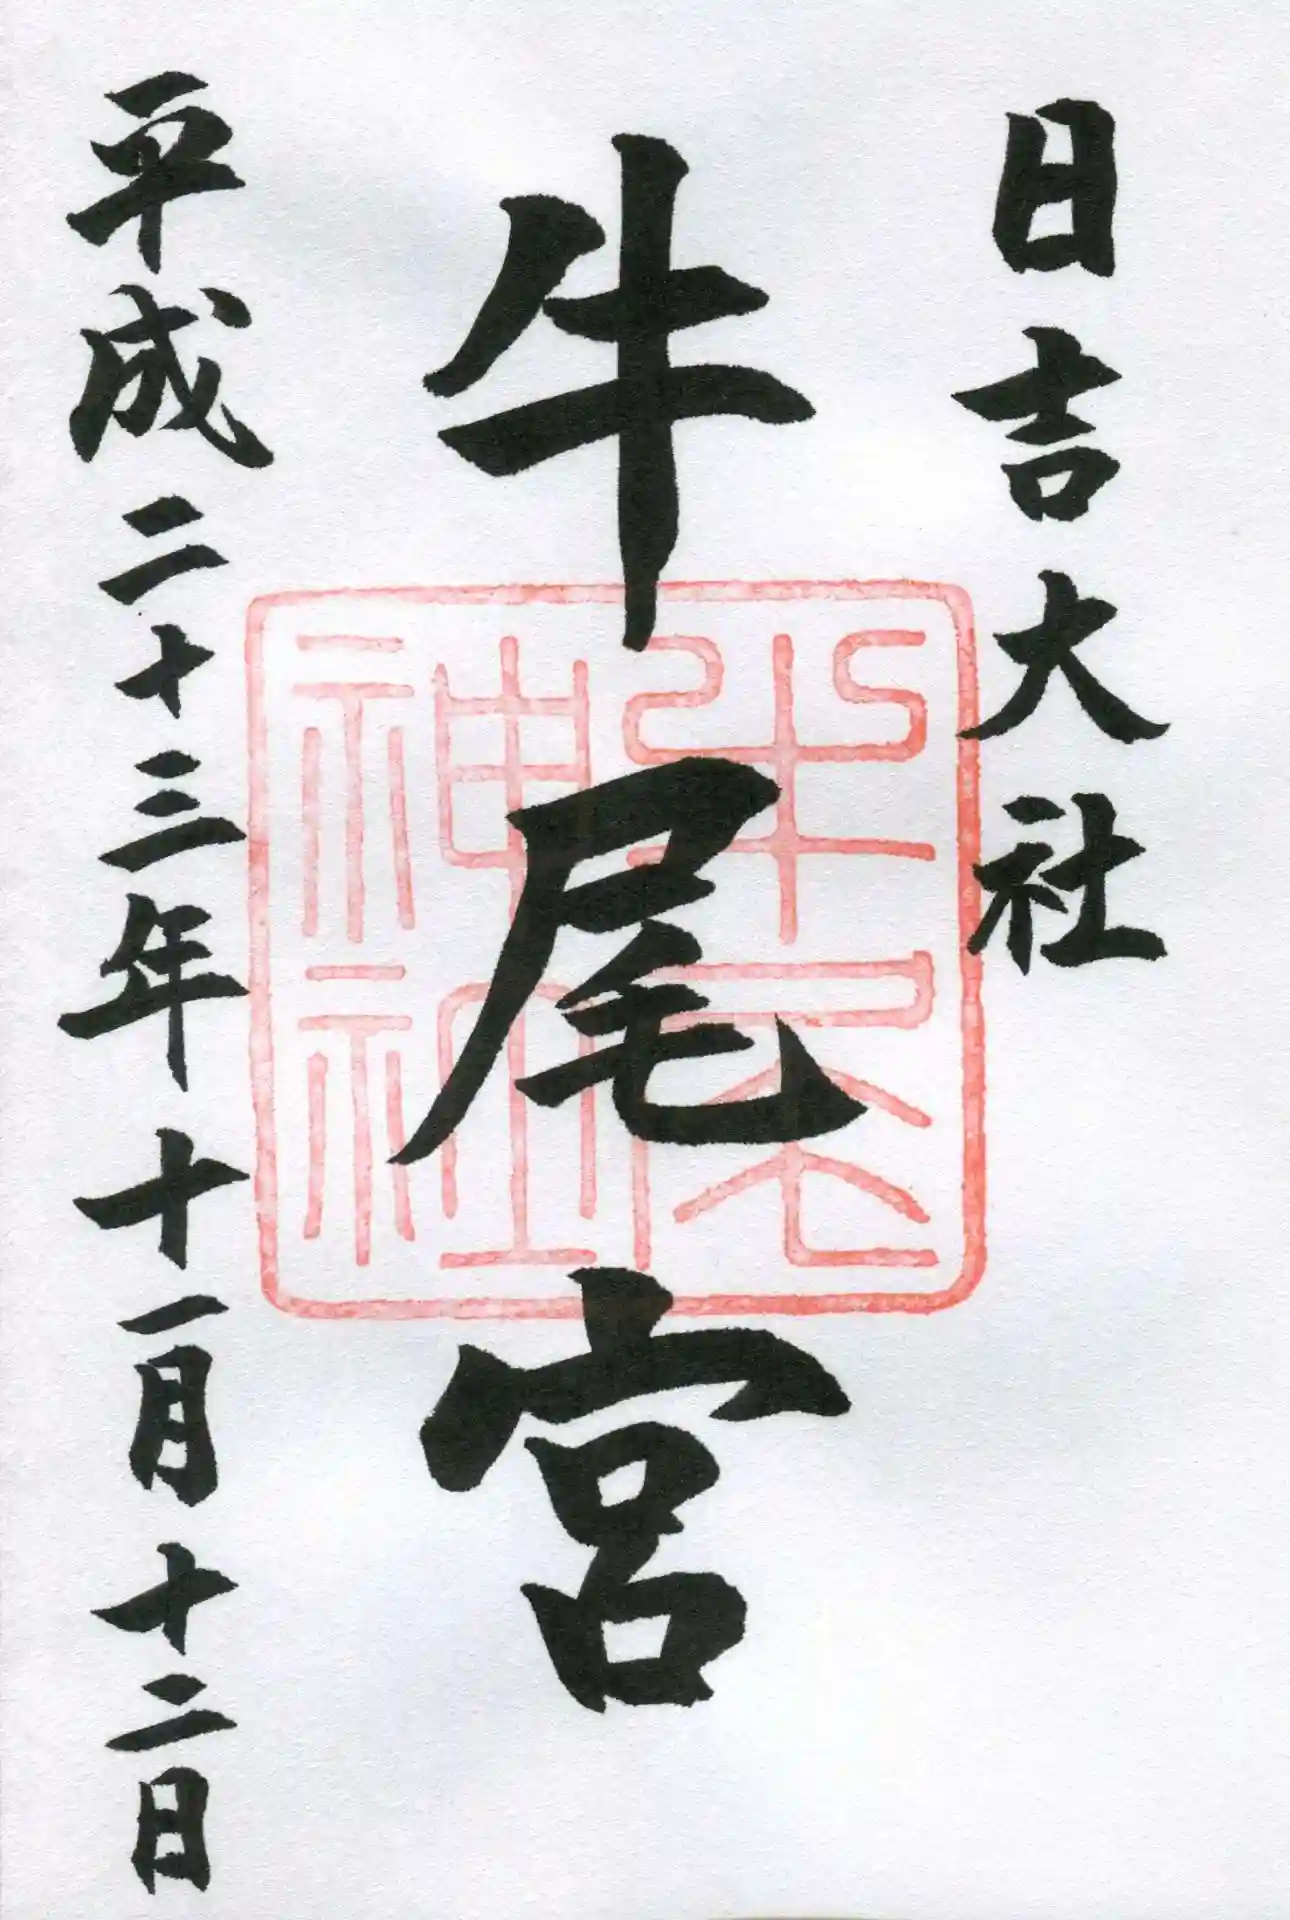 日吉大社
牛尾宮
平成二十三年十一月十二日
牛尾
神社